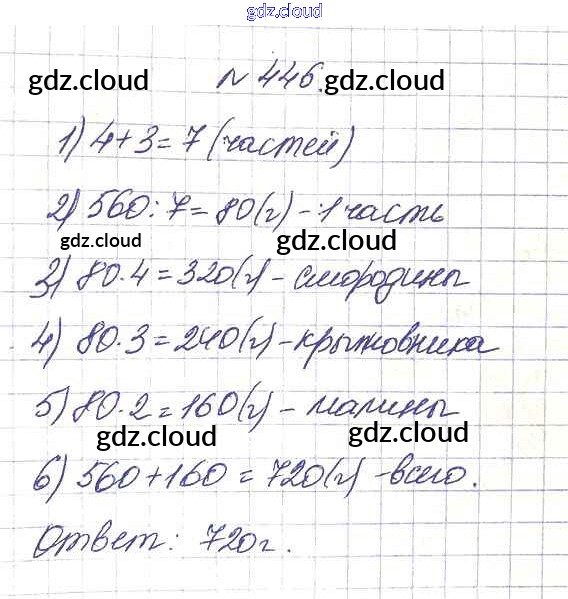 gdz.cloud
gdz.cloud
№ 446. gdz.cloud
1) 4+3=7 (частей)
2) 560:7=80(г) - 1 часть
gdz.cloud gdz.cloud
3) 80·4=320(г) - смородины
4) 80·3=240(г) - крыжовника
5) 80·2=160(г) - малины
gdz.cloud gdz.cloud
6) 560+160=720(г) - всего.
Ответ: 720г.